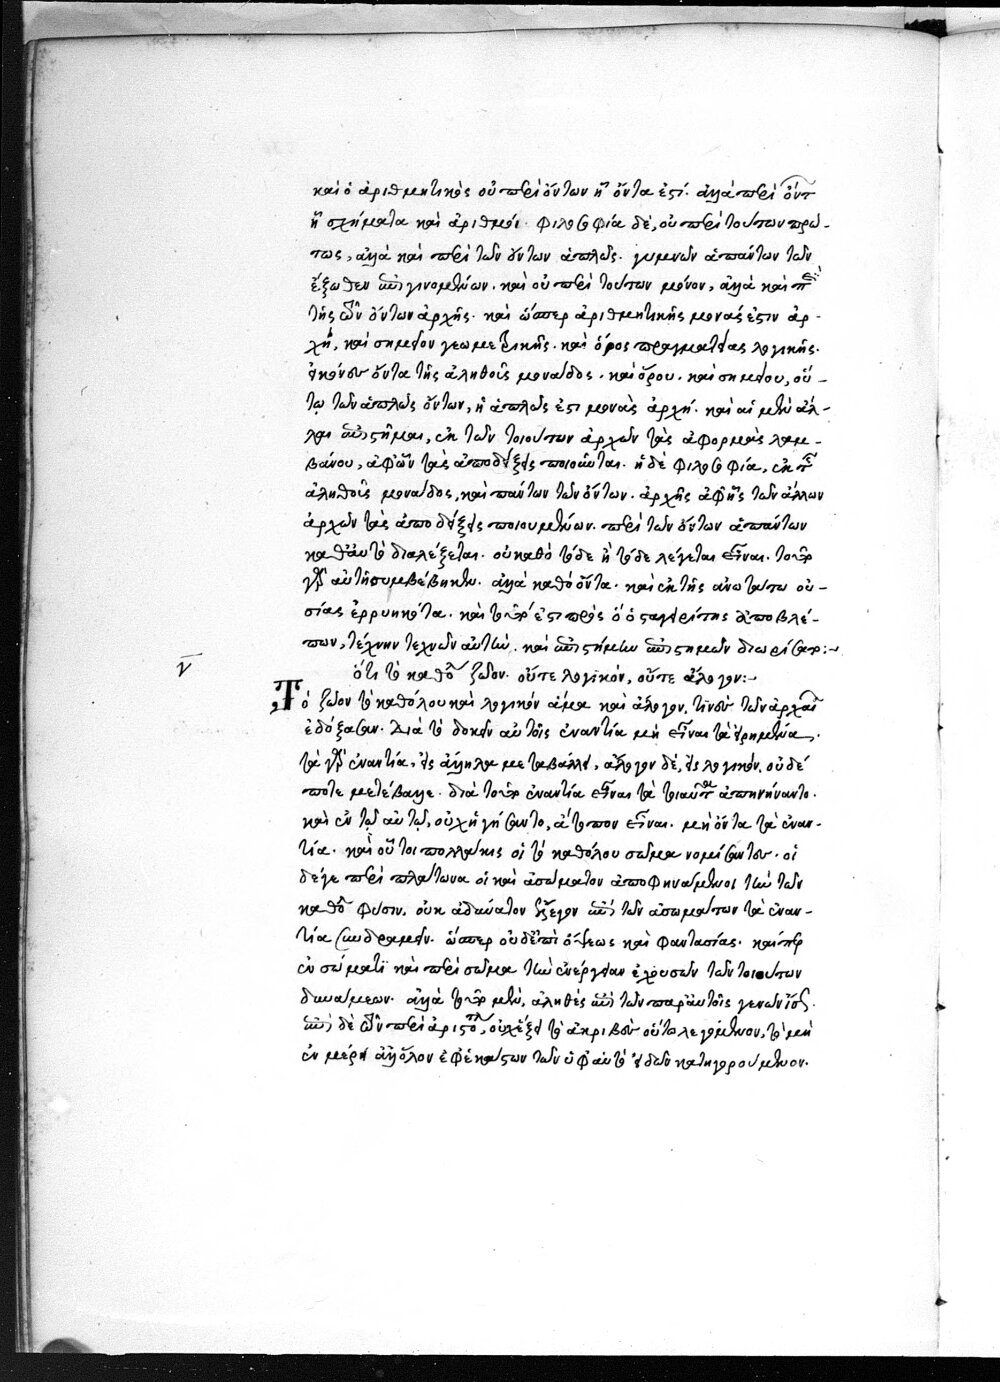 καὶ ὁ ἀριθμητικὸς οὐ περὶ ὄντων ᾗ ὄντα ἐστί. ἀλλὰ περὶ ὄντ
ᾗ σχήματα καὶ ἀριθμοί. φιλοσοφία δὲ, οὐ περὶ τούτων πρώ-
τως, ἀλλὰ καὶ περὶ τῶν ὄντων ἁπλῶς. γυμνῶν ἁπάντων τῶν
ἔξωθεν ἐπιγινομένων. καὶ οὐ περὶ τούτων μόνον, ἀλλὰ καὶ περὶ
τῆς τῶν ὄντων ἀρχῆς. καὶ ὥσπερ ἀριθμητικῆς μονάς ἐστιν ἀρ-
χὴ, καὶ σημεῖον γεωμετρικῆς. καὶ ὅρος πραγματείας λογικῆς.
εἰκόνες ὄντα τῆς ἀληθοῦς μονάδος. καὶ ὅρου. καὶ σημείου, οὕ-
τω τῶν ἁπλῶς ὄντων, ἡ ἁπλῶς ἐστι μονὰς ἀρχή. καὶ αἱ μὲν ἄλ-
λαι ἐπιστῆμαι, ἐκ τῶν τοιούτων ἀρχῶν τὰς ἀφορμὰς λαμ-
βάνου, ἀφ' ὧν τὰς ἀποδείξεις ποιοῦνται. ἡ δὲ φιλοσοφία, ἐκ τῆς
ἀληθοῦς μονάδος, καὶ πάντων τῶν ὄντων. ἀρχῆς ἀφ' ἧς τῶν ἄλλων
ἀρχῶν τὰς ἀποδείξεις ποιουμένων. περὶ τῶν ὄντων ἁπάντων
καθ' αὑτὸ διαλέξεται. οὐ καθὸ τόδε ἢ τόδε λέγεται εἶναι. τοῦτο
γὰρ αὐτῇ συμβέβηκεν. ἀλλὰ καθὸ ὄντα. καὶ ἐκ τῆς ἀνωτάτω οὐ-
σίας ἐρρυηκότα. καὶ τοῦτ' ἔστι πρὸς ὃ ὁ σταγειρίτης ἀποβλέ-
πων, τέχνην τεχνῶν αὐτὴν. καὶ ἐπιστήμην ἐπιστημῶν διωρίσατο:~
ν
ὅτι τὸ καθόλου ζῷον. οὔτε λογικόν, οὔτε ἄλογον:~
Τὸ ζῷον τὸ καθόλου καὶ λογικὸν ἅμα καὶ ἄλογον, τινὲς τῶν ἀρχαίων
ἐδόξασαν. διὰ τὸ δοκεῖν αὐτοῖς ἐναντία μὴ εἶναι τὰ εἰρημένα.
τὰ γὰρ ἐναντία, εἰς ἄλληλα μεταβάλλει, ἄλογον δὲ, εἰς λογικόν, οὐδέ
ποτε μετέβαλλε. διὰ τοῦτο ἐναντία εἶναι τὰ τοιαῦτα ἀπηνήναντο.
καὶ ἐν τῷ αὐτῷ, οὐχ ἡγήσαντο, ἄτοπον εἶναι. μὴ ὄντα τὰ ἐναν-
τία. καὶ οὗτοι πολλάκις οἱ τὸ καθόλου σῶμα νομίσαντες. οἱ
δέγε περὶ πλάτωνα οἱ καὶ ἀσώματον ἀποφηνάμενοι τὴν τῶν
καθόλου φύσιν. οὐκ ἀδύνατον ἔλεγον ἐπὶ τῶν ἀσωμάτων τὰ ἐναν-
τία συνδραμεῖν. ὥσπερ οὐδ' ἐπὶ ὄψεως καὶ φαντασίας. καίπερ
ἐν σώματι καὶ περὶ σῶμα τὴν ἐνέργειαν ἐχουσῶν τῶν τοιούτων
δυνάμεων. ἀλλὰ τοῦτο μὲν, ἀληθὲς ἐπὶ τῶν παρ' αὐτοῖς γενῶν
ἐπὶ δὲ τῶν περὶ ἀριστοτέλη, οὐχ ἕξει τὸ ἀκριβὲς οὕτω λεγόμενον, τὸ μὴ
ἐν μέρει ἀλλ' ὅλον ἐφ' ἑκάστων τῶν ὑφ' αὑτὸ εἰδῶν κατηγορούμενον.